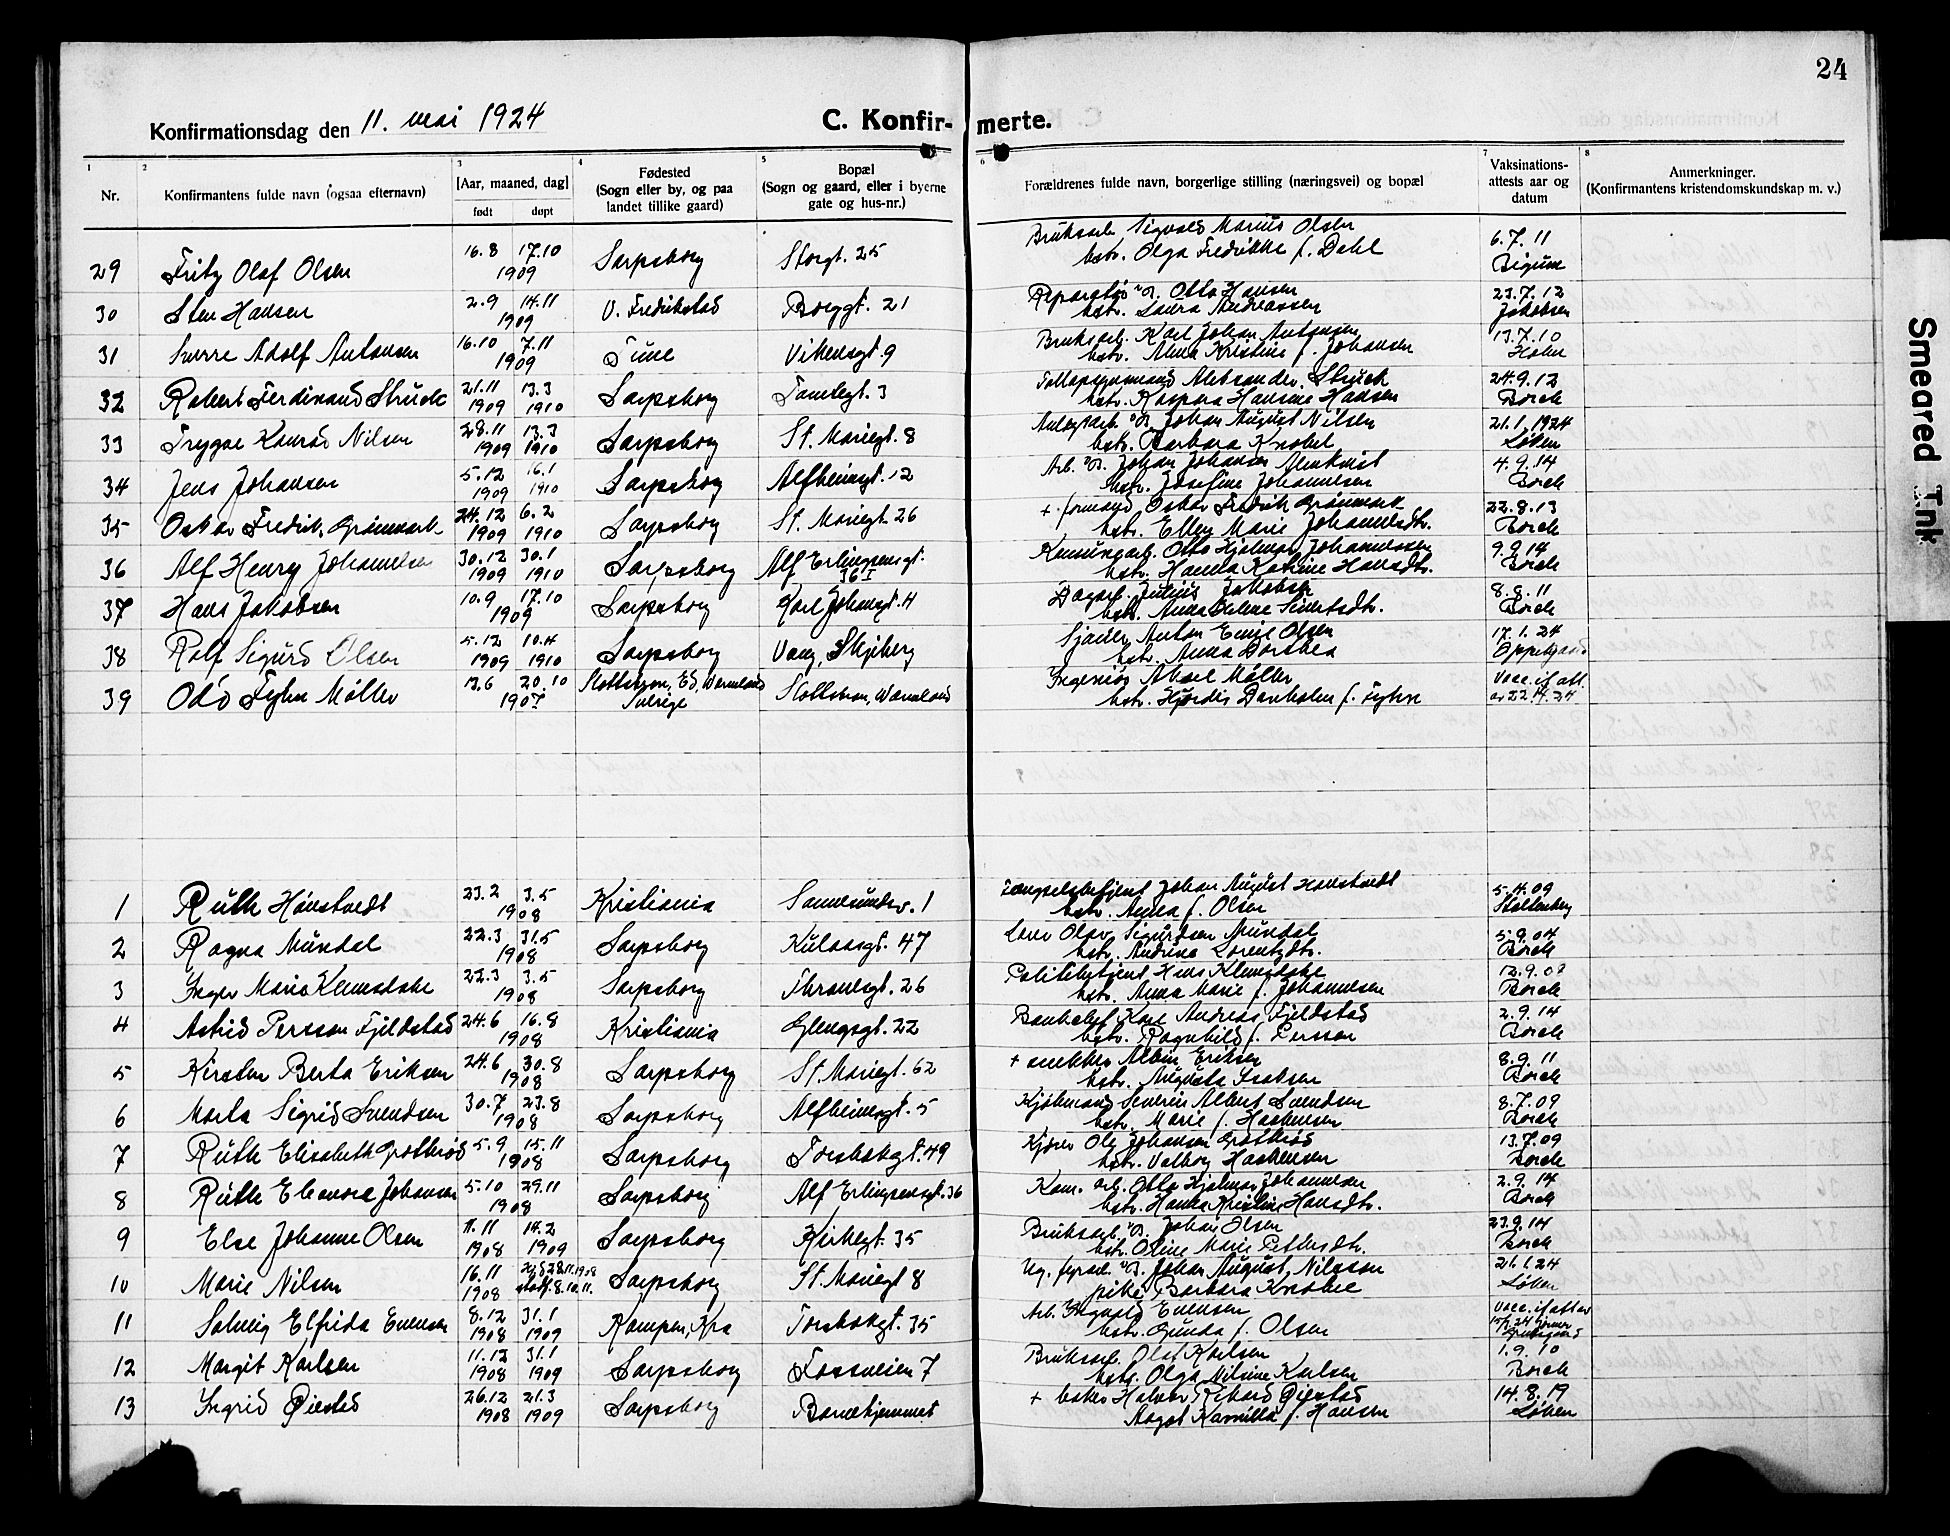 24
Konfirmationsdag den 11. mai 1924
C. Konfirmerte.
1 2 3 4 5 6 7 8
Nr.
Konfirmantens fulde navn (ogsaa efternavn)
[Aar, maaned, dag]
født døpt
Fødested
(Sogn eller by, og paa
landet tillike gaard)
Bopæl
(Sogn og gaard, eller i byerne
gate og hus-nr.)
Forældrenes fulde navn, borgerlige stilling (næringsvei) og bopæl
Vaksinations-
attests aar og
datum
Anmerkninger.
(Konfirmantens kristendomskundskap m. v.)
29 Fritz Olaf Olsen 16.8 17.10 1909 Sarpsborg Storgt. 25 Bruksarb. Sigvald Marius Olsen 6.7.11
hstr. Olga Fredrikke f. Dahl Bigum
30 Sten Hansen 2.9 14.11 1909 V. Fredrikstad Borggt. 21 Otto Hansen 23.7.12
hstr. Laura Andreassen Jakobsen
31 Sverre Adolf Antonsen 16.10 7.11 1909 Tune Vikensgt. 9 Bruksarb. Karl Johan Antonsen 13.7.10
hstr. Alma Kristine f. Johansen Holm
32 Robert Ferdinand Struck 21.11 1909 13.3 1910 Sarpsborg Tomtegt. 3 Aleksander Struck 24.9.12
hstr. Kaspara Hansine Hansen Borch
33 Trygve Konrad Nilsen 28.11 1909 13.3 1910 Sarpsborg St. Mariegt. 8 Johan August Nilsen 21.1.1924
hstr. Barbara Knobel Løken
34 Jens Johansen 5.12 1909 16.1 1910 Sarpsborg Alfheimgt. 12 Arb. Johan Johansen Almkvist 4.9.14
hstr. Josefine Johannesen Borch
35 Oskar Fredrik Grønmark 24.12 1909 6.2 1910 Sarpsborg St. Mariegt. 26 + formand Oskar Fredrik Grønmark 22.8.13
hstr. Ellen Marie Johannesdtr. Borch
36 Alf Henry Johannesen 30.12 1909 30.1 1910 Sarpsborg Alf Erlingsensgt. 36 I Otto Hjalmar Johannessen 9.9.14
hstr. Hanna Katrine Hansdtr. Borch
37 Hans Jakobsen 10.9 17.10 1909 Sarpsborg Karl Johansgt. 4 Dagarb. Julius Jakobsen 8.8.11
hstr. Anna Helene Sivertsdtr. Borch
38 Rolf Sigurd Olsen 5.12 1909 10.4 1910 Sarpsborg Vang, Skjeberg Sjauer Anton Emil Olsen 17.1.24
hstr. Anna Dorthea Oppegaard
39 Odd Fyhn Møller 13.6 20.10 1907 Slottsbron, Ed, Wermland Sverige Slottsbron, Wermland Ingeniør Aksel Møller Vacc. if. att.
hstr. Hjørdis Danholm f. Fyhn av 22.4.24
1 Ruth Høvstvedt 23.2 3.5 1908 Kristiania Sannesundsv. 1 Fængselsbetjent Johan August Høvstvedt 5.4.09
hstr. Anna f. Olsen Stoltenberg
2 Ragna Mundal 22.3 31.5 1908 Sarpsborg Kulaasgt. 47 Olav Sigurdsen Mundal 5.9.04
hstr. Andrina Lorentzdtr. Borch
3 Inger Marie Klemsdahl 22.3 3.5 1908 Sarpsborg Thranesgt. 26 Politibetjent Hans Klemsdahl 12.9.08
hstr. Anna Marie f. Johannesen Borch
4 Astrid Persson Fjeldstad 24.6 16.8 1908 Kristiania Glengsgt. 22 Banksjef Karl Andreas Fjeldstad 2.9.14
hstr. Ragnhild f. Persson Borch
5 Kirsten Berta Eriksen 24.6 30.8 1908 Sarpsborg St. Mariegt. 62 + snekker Albin Eriksen 8.9.11
hstr. Augusta Isaksen Borch
6 Marta Sigrid Svendsen 30.7 23.8 1908 Sarpsborg Alfheimgt. 5 Kjøbmand Severin Albert Svendsen 8.7.09
hstr. Marie f. Haakensen Borch
7 Ruth Elisabeth Grøtterød 5.9 15.11 1908 Sarpsborg Torsbakgt. 49 Kjører Ole Johansen Grøtterød 13.7.09
hstr. Valborg Haakensen Borch
8 Ruth Eleonora Johansen 5.10 29.11 1908 Sarpsborg Alf Erlingsensgt. 36 Kom. arb. Otto Hjalmar Johannesen 2.9.14
hstr. Hanna Kristine Hansdtr. Borch
9 Else Johanne Olsen 11.11 1908 14.2 1909 Sarpsborg Kirkegt. 35 Bruksarb. Johan Olsen 23.9.14
hstr. Oline Marie Pettersdtr. Borch
10 Marie Nilsen 16.11 1908 28.11.1908 stadf. 8.10.11. Sarpsborg St. Mariegt 8 Johan August Nilsson 21.1.24
pike Barbara Knobel Løken
11 Solveig Elfrida Evensen 8.12 1908 31.1 1909 Kampen, Kra Torsbakgt. 35 Arb. Ingvald Evensen Vacc. if attest
hstr. Gunda f. Olsen 15/1.24
12 Margit Karlsen 11.12 1908 31.1 1909 Sarpsborg Fossveien 7 Bruksarb. Olaf Karlsen 1.9.10
hstr. Olga Nilsine Karlsen Borch
13 Ingrid Øiestad 26.12 1908 21.3 1909 Sarpsborg Barnehjemmet + baker Halvor Rikard Øiestad 14.8.19
Aagot Kamilla f. Hansen Løken
Smeared Ink